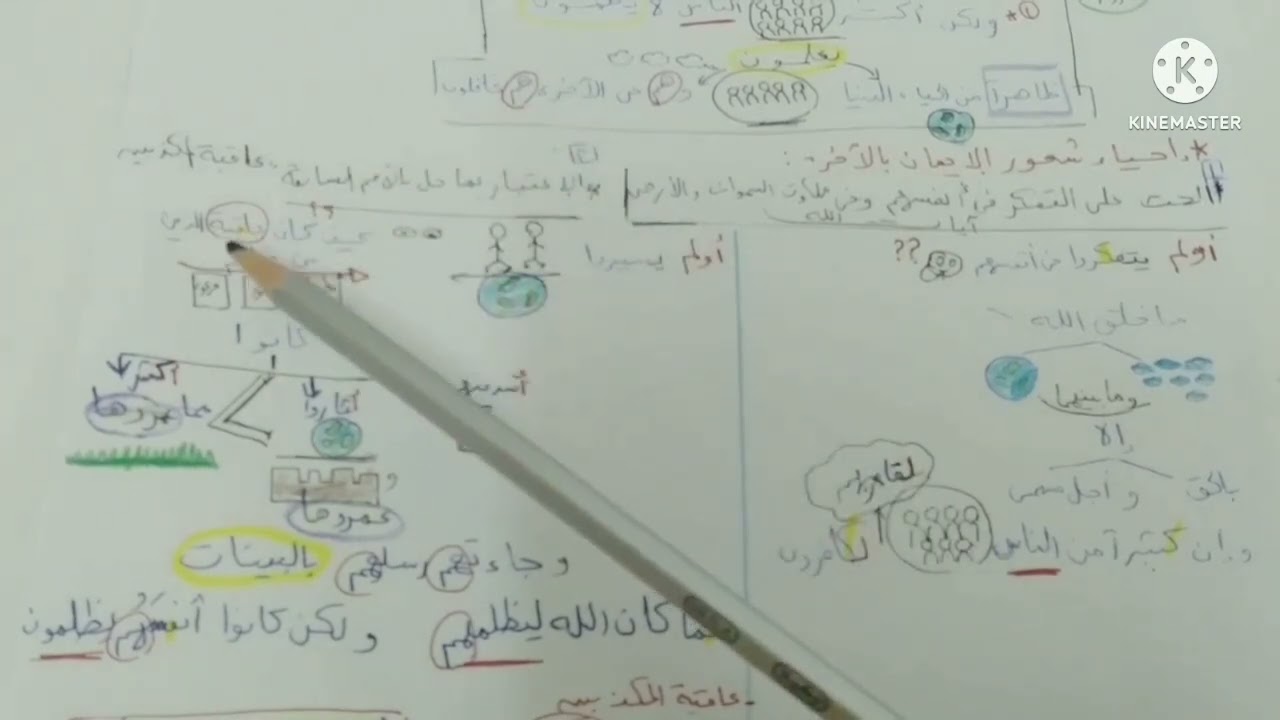 ① * ولكن أكثر الناس لا يعلمون
يعلمون
ظاهرا من الحياة الدنيا وهم عن الآخرة هم غافلون
KINEMASTER
* إحياء شعور الإيمان بالآخرة :
الحث على التفكر في أنفسهم وفي ملكوت السموات والأرض
آيات الله
أولم يتفكروا في أنفسهم ??
ما خلق الله
وما بينهما
إلا
بالحق وأجل مسمى
وإن كثيرا من الناس
بلقاء ربهم
لكافرون
عاقبة المكذبين
أولم يسيروا
كيف كان عاقبة الذين
كانوا
أشد منهم
أثاروا
و
عمروها
أكثر
مما عمروها
وجاءتهم رسلهم بالبينات
فما كان الله ليظلمهم ولكن كانوا أنفسهم يظلمون
- عاقبة المكذبين